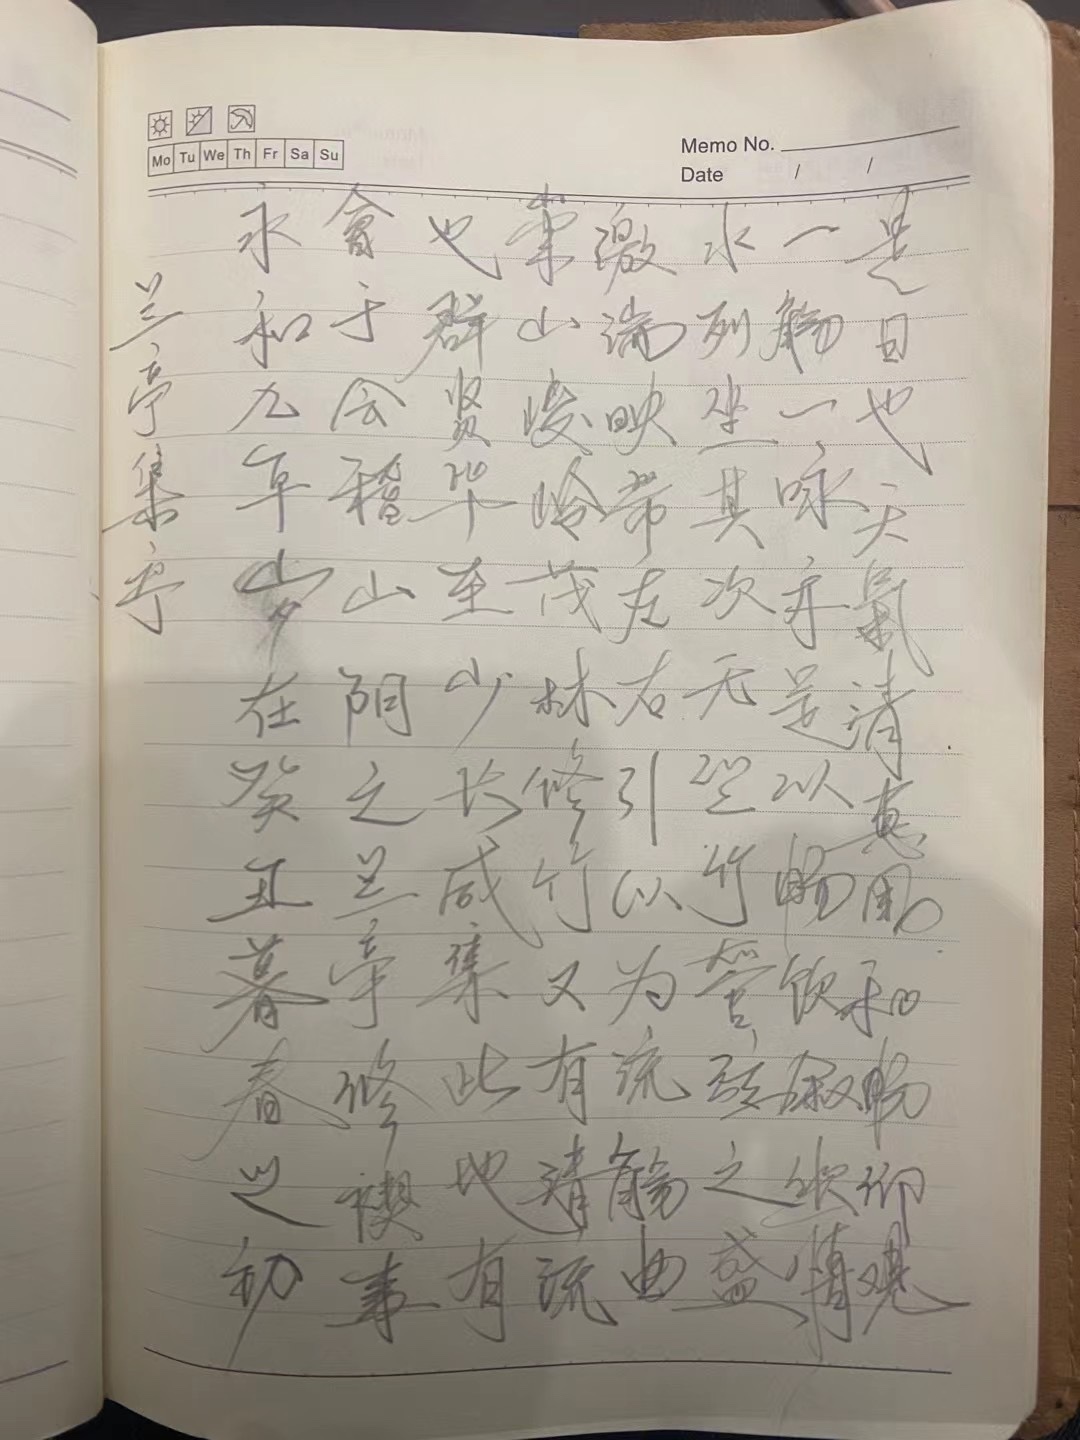 Mo Tu We Th Fr Sa Su
Memo No.
Date / /
兰亭集序
永和九年岁在癸丑暮春之初
會于会稽山阴之兰亭修禊事
也群贤毕至少长咸集此地有
崇山峻岭茂林修竹又有清流
激湍映带左右引以为流觞曲
水列坐其次无丝竹管弦之盛
一觞一咏亦足以畅饮叙幽情
是日也天氣清惠风和畅仰观